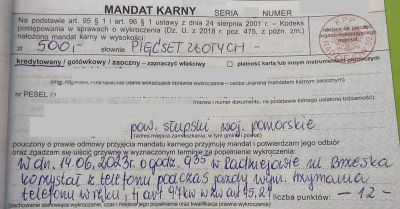 MANDAT KARNY SERIA NUMER
Na podstawie art. 95 § 1 i art. 96 § 1 ustawy z dnia 24 sierpnia 2001 r. – Kodeks
postępowania w sprawach o wykroczenia (Dz. U. z 2018 r. poz. 475, z późn. zm.)
nałożono mandat karny w wysokości:
zł 500,- słownie PIĘĆSET ZŁOTYCH -
kredytowany / gotówkowy / zaoczny – zaznaczyć właściwy płatność kartą lub innym instrumentem płatniczym
nr PESEL /
(nazwa i numer dokumentu, na podstawie którego ustalono tożsamość)
pow. słupski woj. pomorskie
(adres miejsca zameldowania, w tym gmina i powiat)
pouczony o prawie odmowy przyjęcia mandatu karnego przyjmuję mandat i potwierdzam jego odbiór
oraz zgadzam się uiścić grzywnę w wyznaczonym terminie za popełnienie wykroczenia:
W dn. 14.06.2023r. o godz. 9:35 w
korzystał z telefonu podczas jazdy wym. trzymania
telefonu w ręku, tj art 97kw w zw art 45.2.1
liczba punktów — 12 —
(zachowanie stanowiące wykroczenie, czas i miejsce jego popełnienia oraz kwalifikacja prawna wykroczenia)